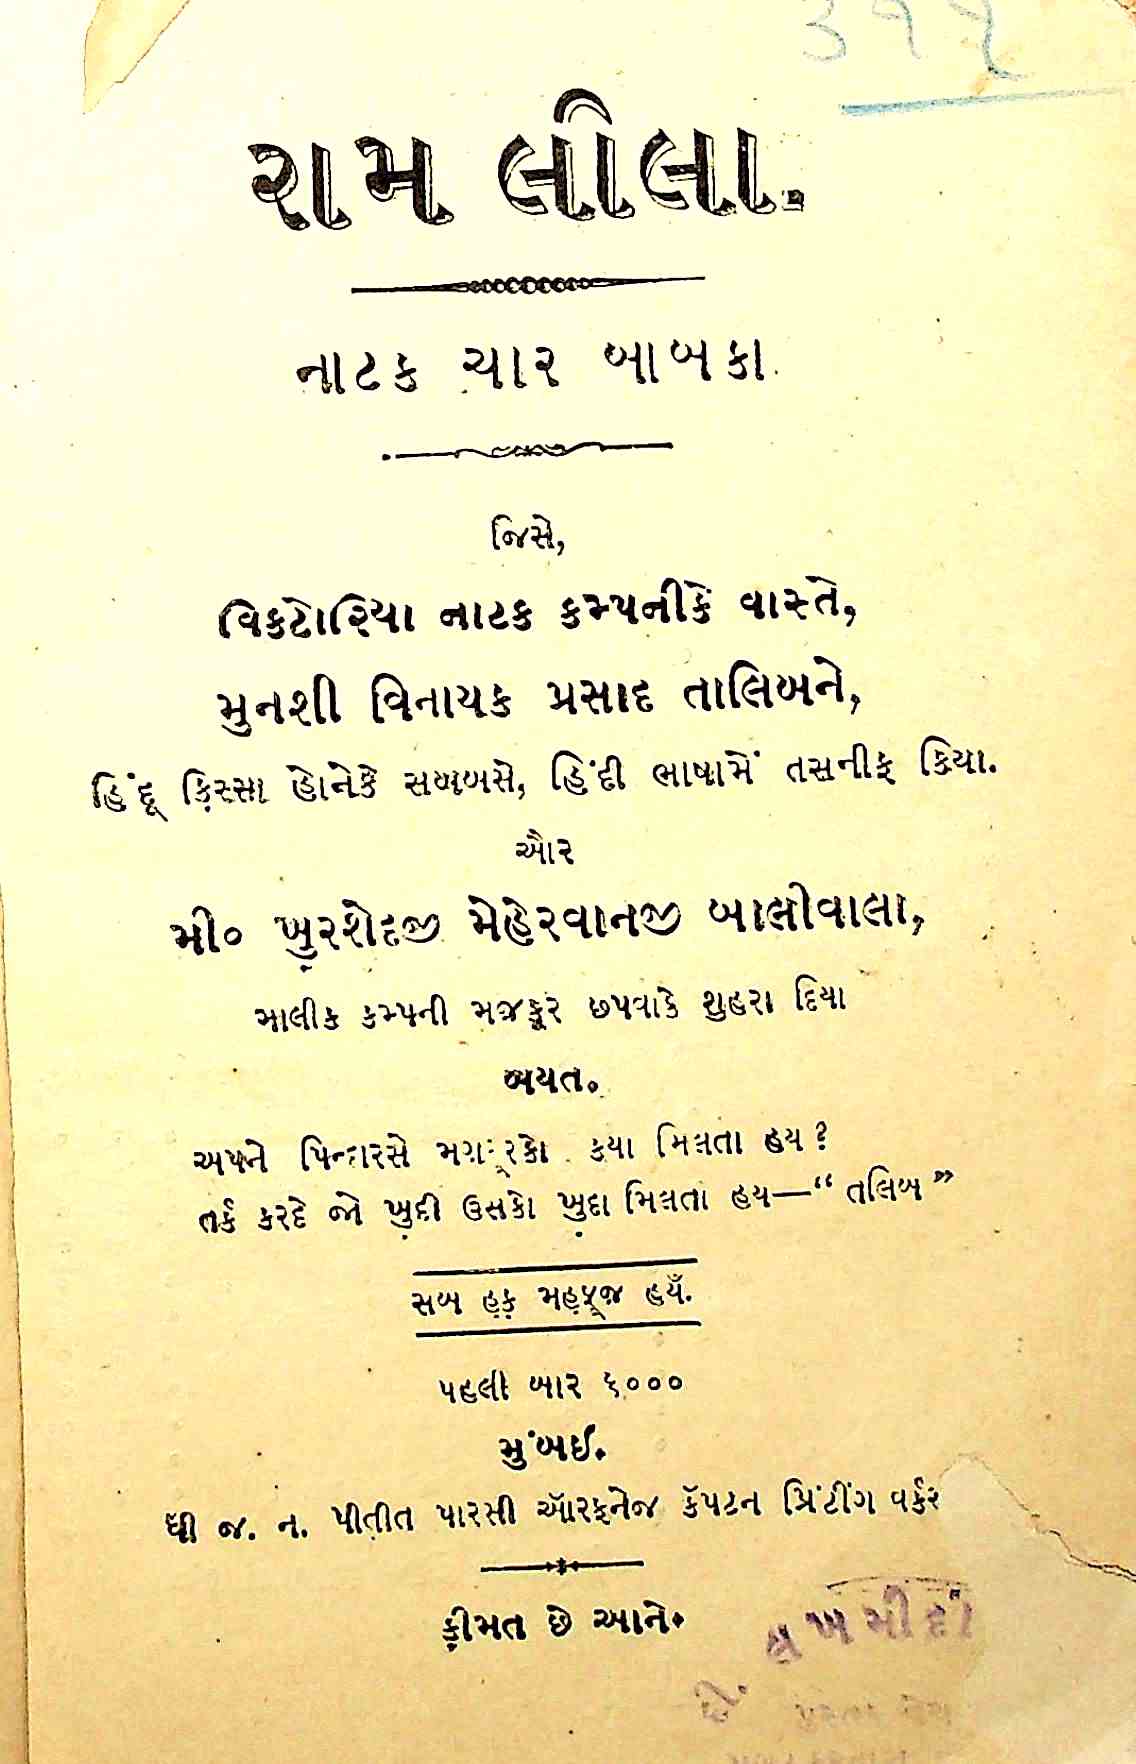 ૩૧૨
રામ લીલા.
નાટક ચાર બાબકા
જિસે,
વિકટોરિયા નાટક કમ્પનીકે વાસ્તે,
મુનશી વિનાયક પ્રસાદ તાલિબને,
હિંદૂ ક઼િસ્સા હોનેકે સબબસે, હિંદી ભાષામેં તસનીફ કિયા.
ઔર
મી૦ ખ઼ુરશેદજી મેહેરવાનજી બાલીવાલા,
માલીક કમ્પની મજકૂર છપવાકે શુહરા દિયા
બયત.
અપને પિન્દારસે મગ઼રૂરકો ક્યા મિલતા હય?
તર્ક કરદે જો ખ઼ુદી ઉસકો ખ઼ુદા મિલતા હય—“તલિબ”
સબ હ઼ક઼ મહ઼ફૂજ઼ હયઁ.
પહલી બાર ૬૦૦૦
મુંબઈ.
ધી જ. ન. પીતીત પારસી ઑરફનેજ કૅપટન પ્રિંટીંગ વર્કર
ક઼ીમત છે આને.